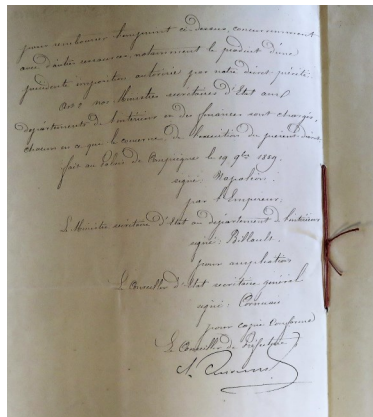 pour rembourser l'emprunt ci-dessus, concurremment
avec d'autres ressources, notamment le produit d'une
précédente imposition autorisée par notre décret précité.
Art 2 nos Ministres secrétaires d'Etat aux
départements de l'intérieur et des finances sont chargés,
chacun en ce qui le concerne de l'exécution du présent décret
fait au Palais de Compiègne le 19 9bre 1859.
signé Napoléon.
par l'Empereur:
Le Ministre secrétaire d'Etat au département de l'intérieur
signé: Billault.
pour ampliation
Le Conseiller d'Etat secrétaire général
signé: Cornuau
pour copie conforme
Le Conseiller de Préfecture